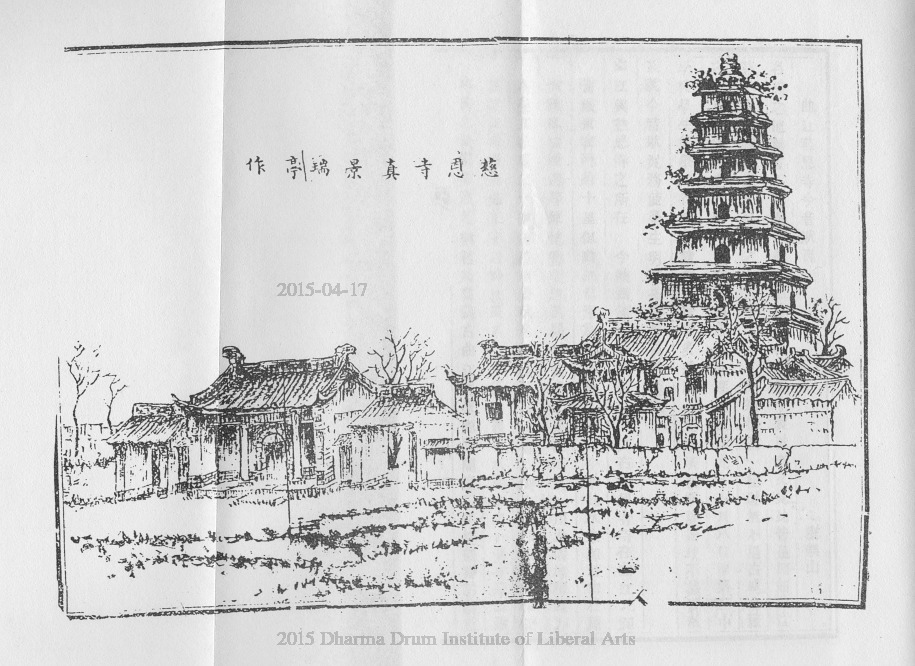 慈恩寺真景瑞亭作
2015-04-17
2015 Dharma Drum Institute of Liberal Arts